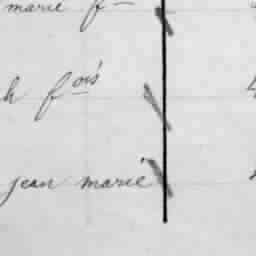 marie f
h fois
jean marie